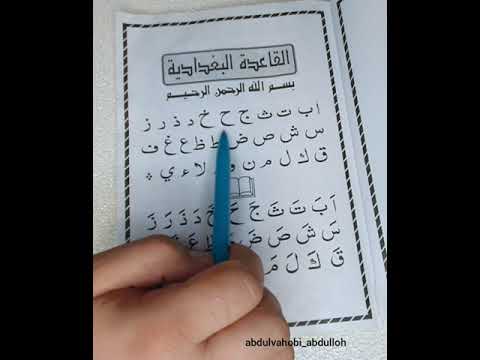 القاعدة البغدادية
بسم الله الرحمن الرحيم
ا ب ت ث ج ح خ د ذ ر ز
س ش ص ض ط ظ ع غ ف
ق ك ل م ن و لا ء ي
اَ بَ تَ ثَ جَ حَ خَ دَ ذَ رَ زَ
سَ شَ صَ ضَ
قَ كَ لَ مَ
abdulvahobi_abdulloh